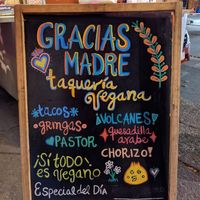 GRACIAS
MADRE
taquería
vegana
tacos
gringas
PASTOR
¡VOLCANES!
quesadilla
árabe
CHORIZO!
¡Sí TODO
es VEGANO
Especial del Día